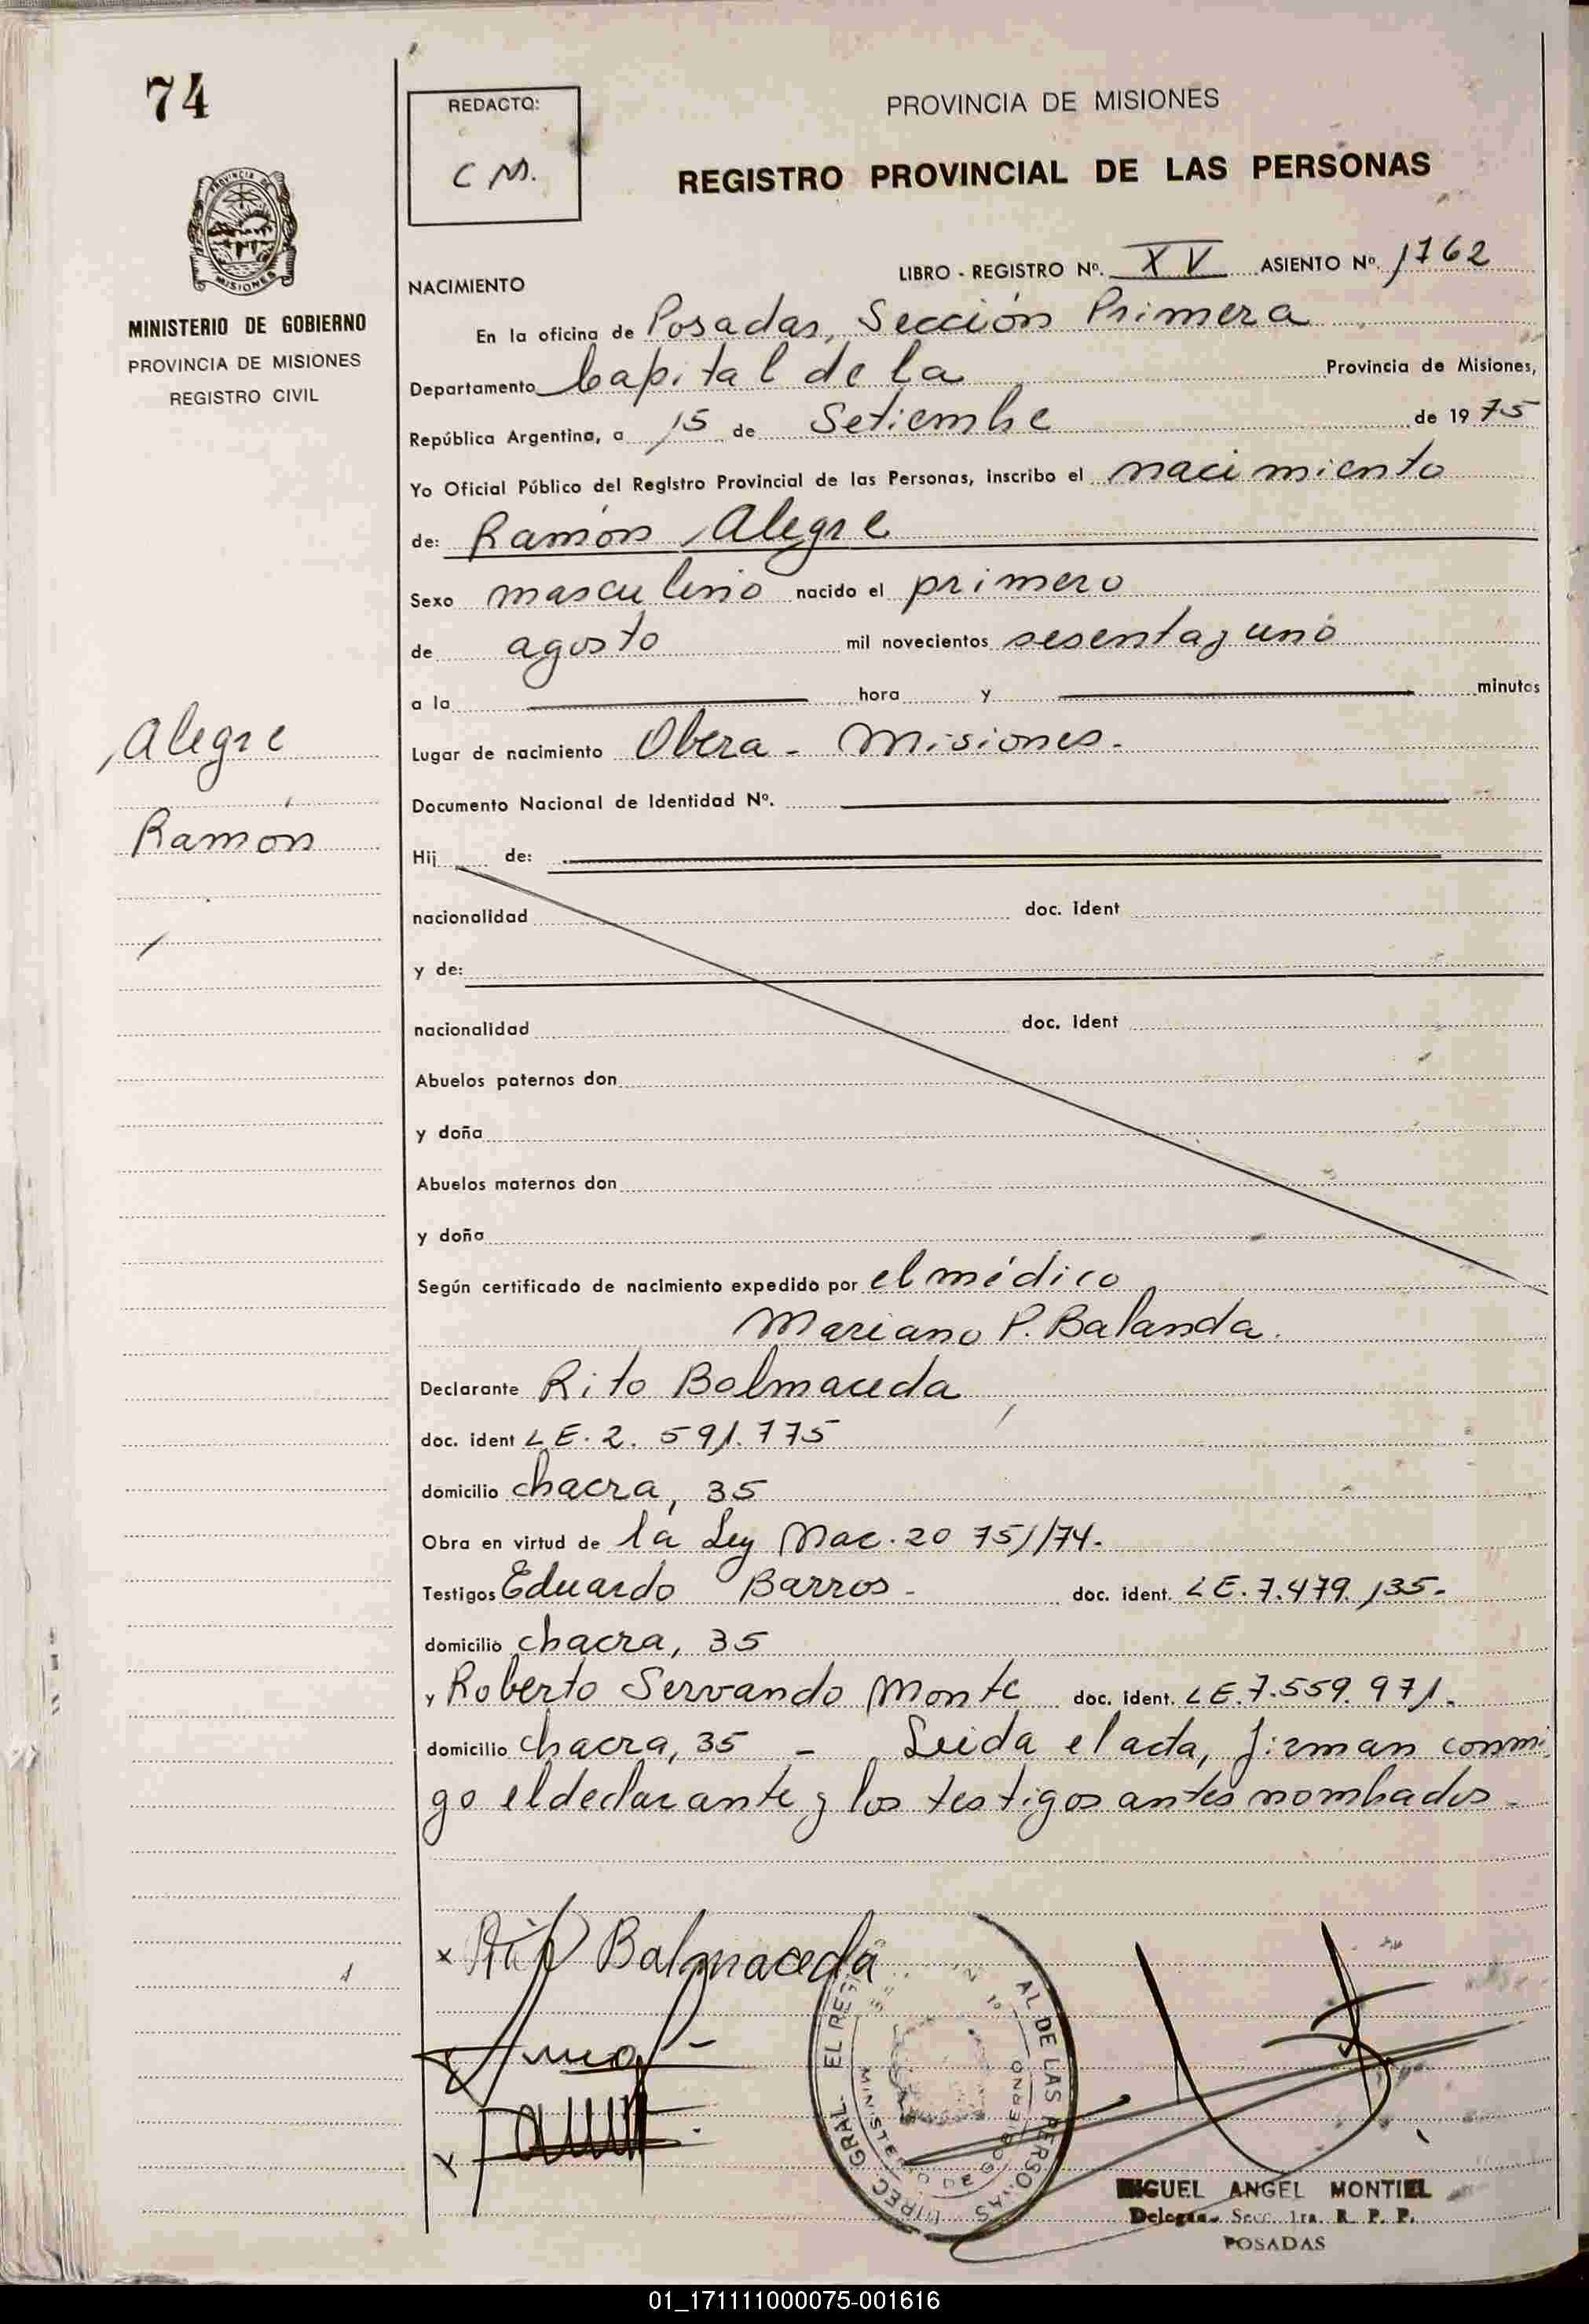 74
REDACTO:
C M.
PROVINCIA DE MISIONES
REGISTRO PROVINCIAL DE LAS PERSONAS
PROVINCIA DE
MISIONES
MINISTERIO DE GOBIERNO
PROVINCIA DE MISIONES
REGISTRO CIVIL
Alegre
Ramón
LIBRO - REGISTRO Nº. XV ASIENTO Nº. 1762
NACIMIENTO
En la oficina de Posadas, Sección Primera
Departamento Capital de la Provincia de Misiones,
República Argentina, a 15 de Setiembre de 1975
Yo Oficial Público del Registro Provincial de las Personas, inscribo el nacimiento
de: Ramón Alegre
Sexo masculino nacido el primero
de agosto mil novecientos sesenta y uno
a la hora y minutos
Lugar de nacimiento Obera - Misiones.
Documento Nacional de Identidad Nº.
Hij de:
nacionalidad doc. ident
y de:
nacionalidad doc. ident
Abuelos paternos don
y doña
Abuelos maternos don
y doña
Según certificado de nacimiento expedido por el médico
Mariano P. Balanda.
Declarante Rito Balmaceda
doc. ident LE. 2. 591. 775
domicilio chacra, 35
Obra en virtud de la Ley Nac. 20 751/74.
Testigos Eduardo Barros - doc. ident. LE. 7.479.135.
domicilio chacra, 35
y Roberto Servando Monte doc. ident. LE. 7.559.971.
domicilio chacra, 35 - Leida el acta, firman conmi
go el declarante y los testigos antes nombrados -
x Rito Balmaceda
DIREC. GRAL. EL REG AL DE LAS PERSONAS
MINISTERIO DE GOBIERNO
MIGUEL ANGEL MONTIEL
Delegado Secc. 1ra. R. P. P.
POSADAS
01_171111000075-001616